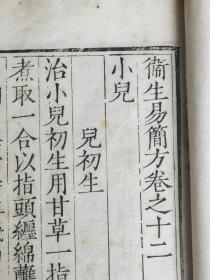 衞生易簡方卷之十二
小兒
兒初生
治小兒初生用甘草一指
煮取一合以指頭纏綿蘸